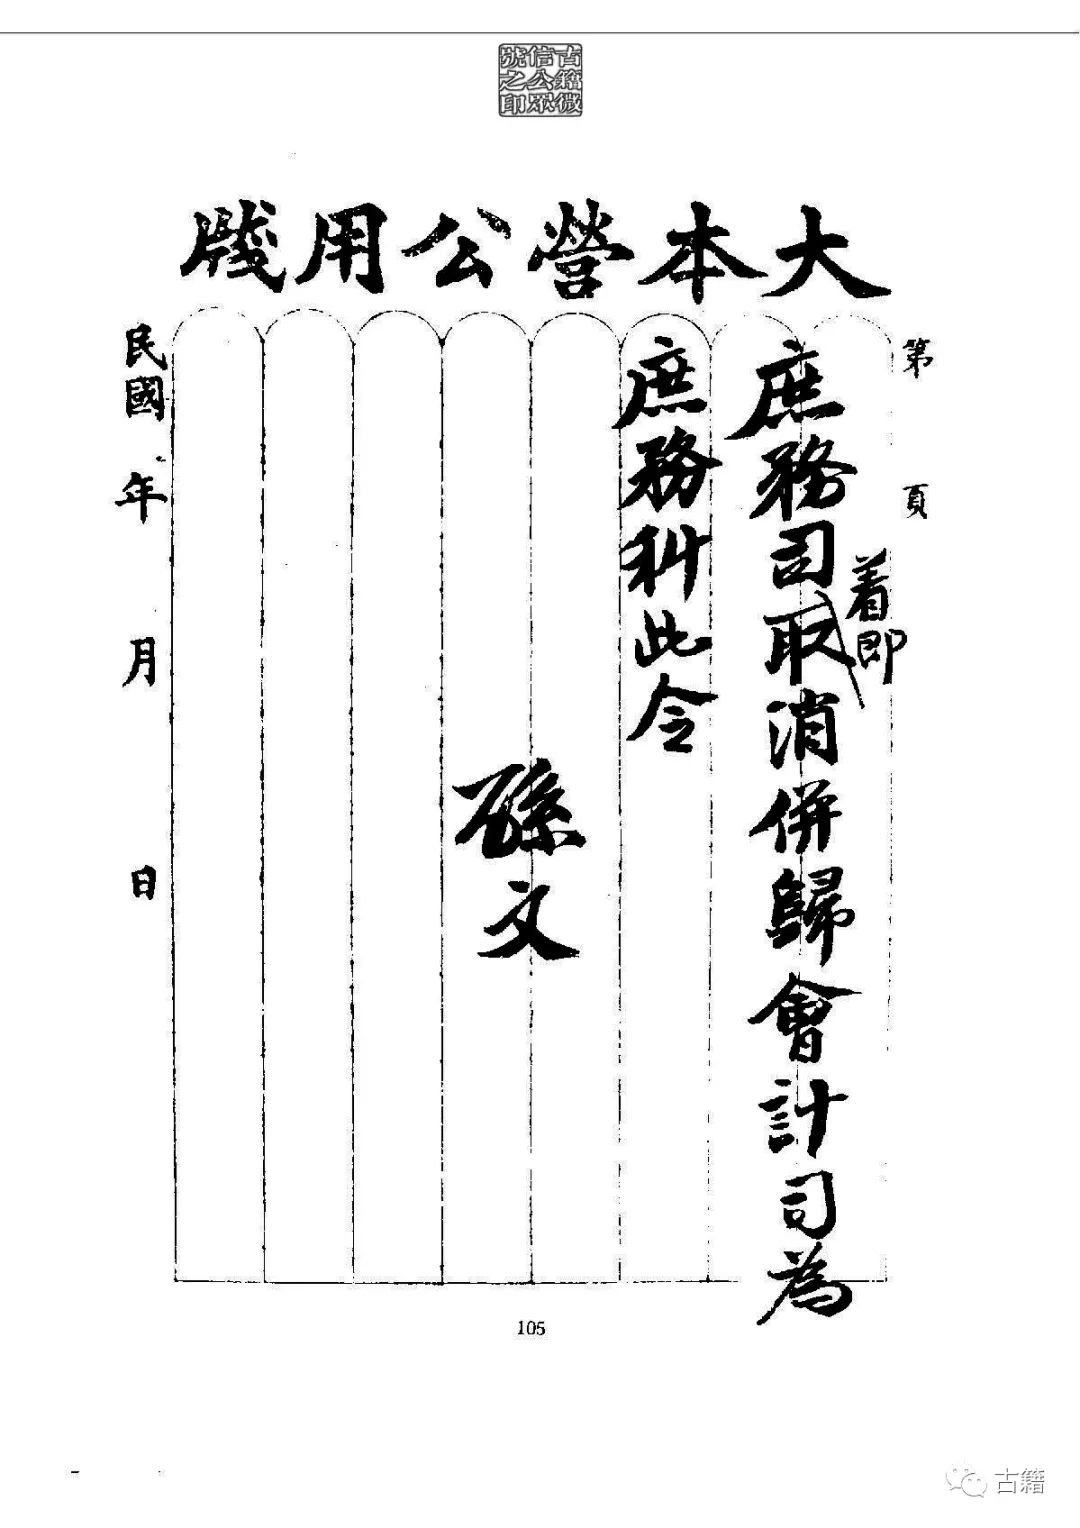 古籍微
信公眾
號之印
大本營公用牋
第 頁
庶務司着即取消併歸會計司為
庶務科此令
孫文
民國 年 月 日
105
古籍